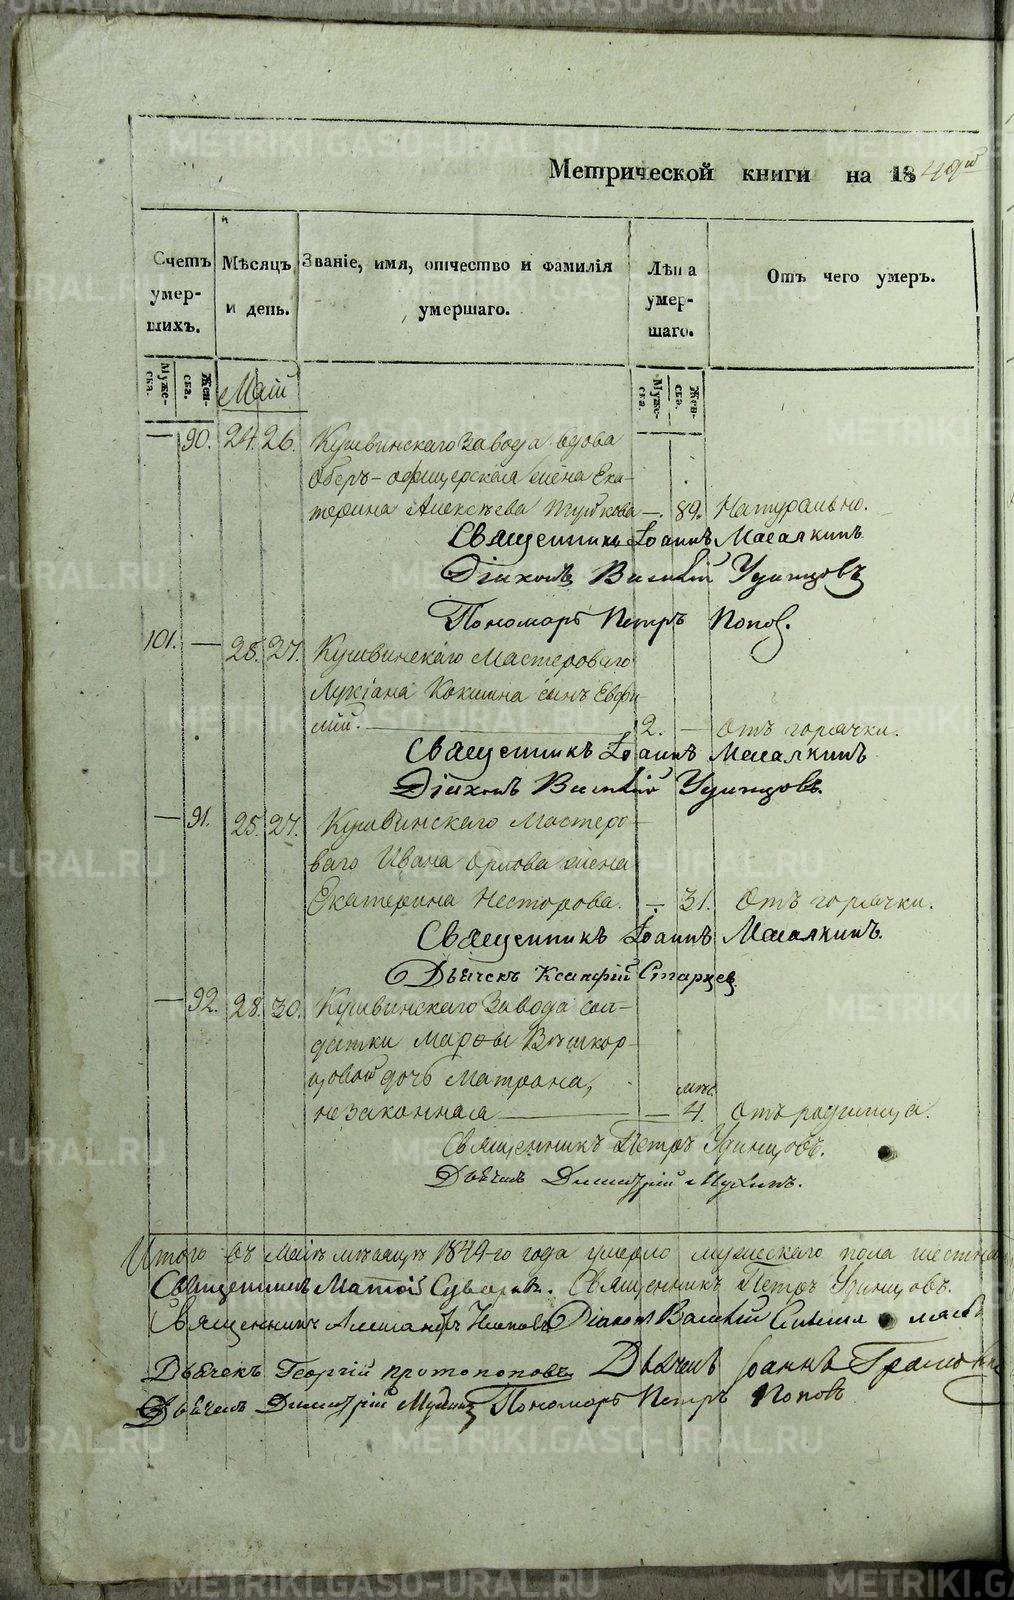 Метрической книги на 1849й
Счетъ умер-шихъ.
Мѣсяцъ и день.
Званіе, имя, отчество и фамилія умершаго.
Лѣта умер-шаго.
Отъ чего умеръ.
Муже-ска.
Жен-ска.
Май
Муже-ска.
Жен-ска.
— 90. 24. 26. Кушвинскаго Завода вдова
Оберъ-офицерская жена Ека-
терина Алексѣева — 89. Натурально.
Священникъ Іоаннъ Масалкинъ
Діаконъ Василій Удинцовъ
Пономарь Петръ Попов.
101. — 25. 27. Кушвинскаго Мастероваго
Лукіана Кокшина сынъ Евфи-
мій. 2. — Отъ горячки.
Священникъ Іоаннъ Масалкинъ
Діаконъ Василій Удинцовъ.
— 91. 25. 27. Кушвинскаго Мастеро-
ваго Ивана Орлова жена
Екатерина Несторова. — 31. Отъ горячки.
Священникъ Іоаннъ Масалкинъ.
Дьячекъ Старцев
— 92. 28. 30. Кушвинскаго Завода сол-
датки Марфы
дочь Матрона,
мѣс.
незаконная — 4. Отъ родимца.
Священникъ Петръ Удинцовъ.
Дьячекъ Димитрій Мухинъ.
Итого въ Маіѣ мѣсяцѣ 1849-го года умерло мужескаго пола
Священникъ Матѳій Суворовъ. Священникъ Петръ Удинцовъ.
Священникъ Діаконъ Василій
Дьячекъ Георгій Протопоповъ Дьячекъ Іоаннъ
Дьячекъ Димитрій Мухинъ Пономарь Петръ Поповъ
METRIKI.GASO-URAL.RU